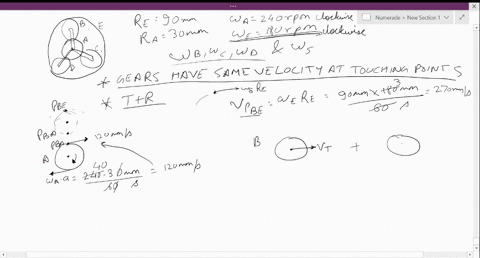 Numerade > New Section 1
B
E
A
C
D
R_E = 90mm
ω_A = 240rpm clockwise
R_A = 30mm
ω_E = 180rpm clockwise
ω_B, ω_C, ω_D & ω_S
* GEARS HAVE SAME VELOCITY AT TOUCHING POINTS
* T+R
ω_E R_E
V_PBE = ω_E R_E = 90mm × 180 3mm / 60 s = 270mm/s
P_BE
P_BA
P_BA
120mm/s
A
ω_A·a = 240 40 · 3 0mm / 60 s = 120mm/s
B
V_T
+